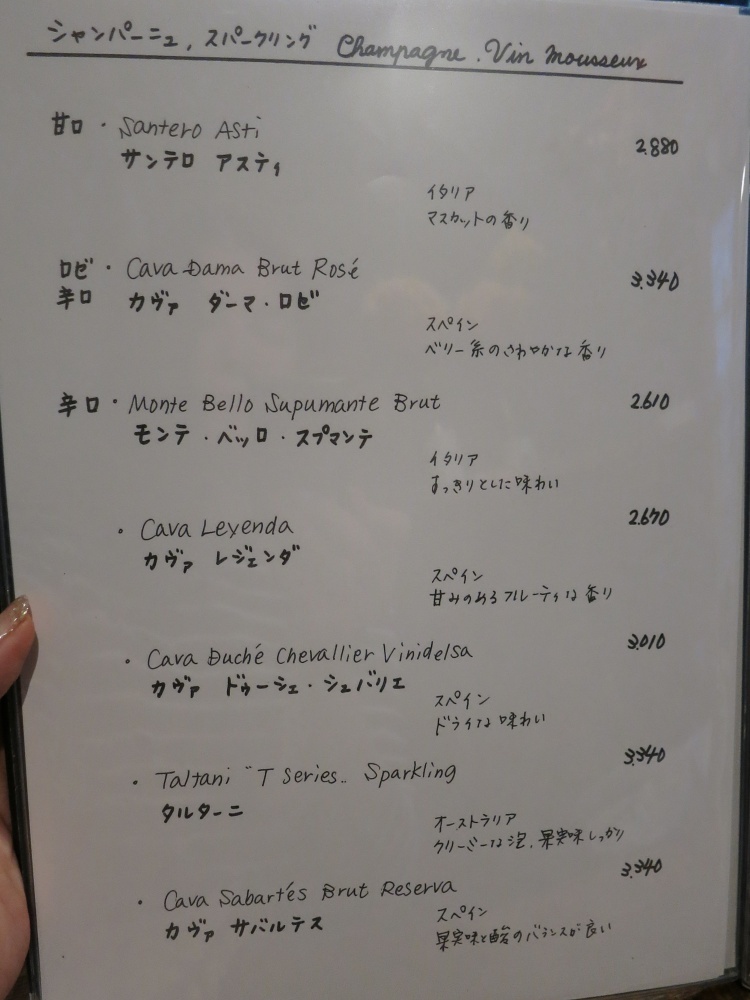 シャンパーニュ, スパークリング Champagne. Vin mousseux
甘口 ・ Santero Asti
2.880
サンテロ アスティ
イタリア
マスカットの香り
ロゼ ・ Cava Dama Brut Rosé
3.340
辛口 カヴァ ダーマ・ロゼ
スペイン
ベリー系のさわやかな香り
辛口 ・ Monte Bello Supumante Brut
2.610
モンテ ・ベッロ・スプマンテ
イタリア
すっきりとした味わい
・ Cava Leyenda
2.670
カヴァ レジェンダ
スペイン
甘みのあるフルーティな香り
・ Cava Duché Chevallier Vinidelsa
3.010
カヴァ ドゥーシェ・シュバリエ
スペイン
ドライな味わい
・ Taltani "T Series.. Sparkling
3.340
タルターニ
オーストラリア
クリーミーな泡、果実味しっかり
・ Cava Sabartés Brut Reserva
3.340
カヴァ サバルテス
スペイン
果実味と酸のバランスが良い